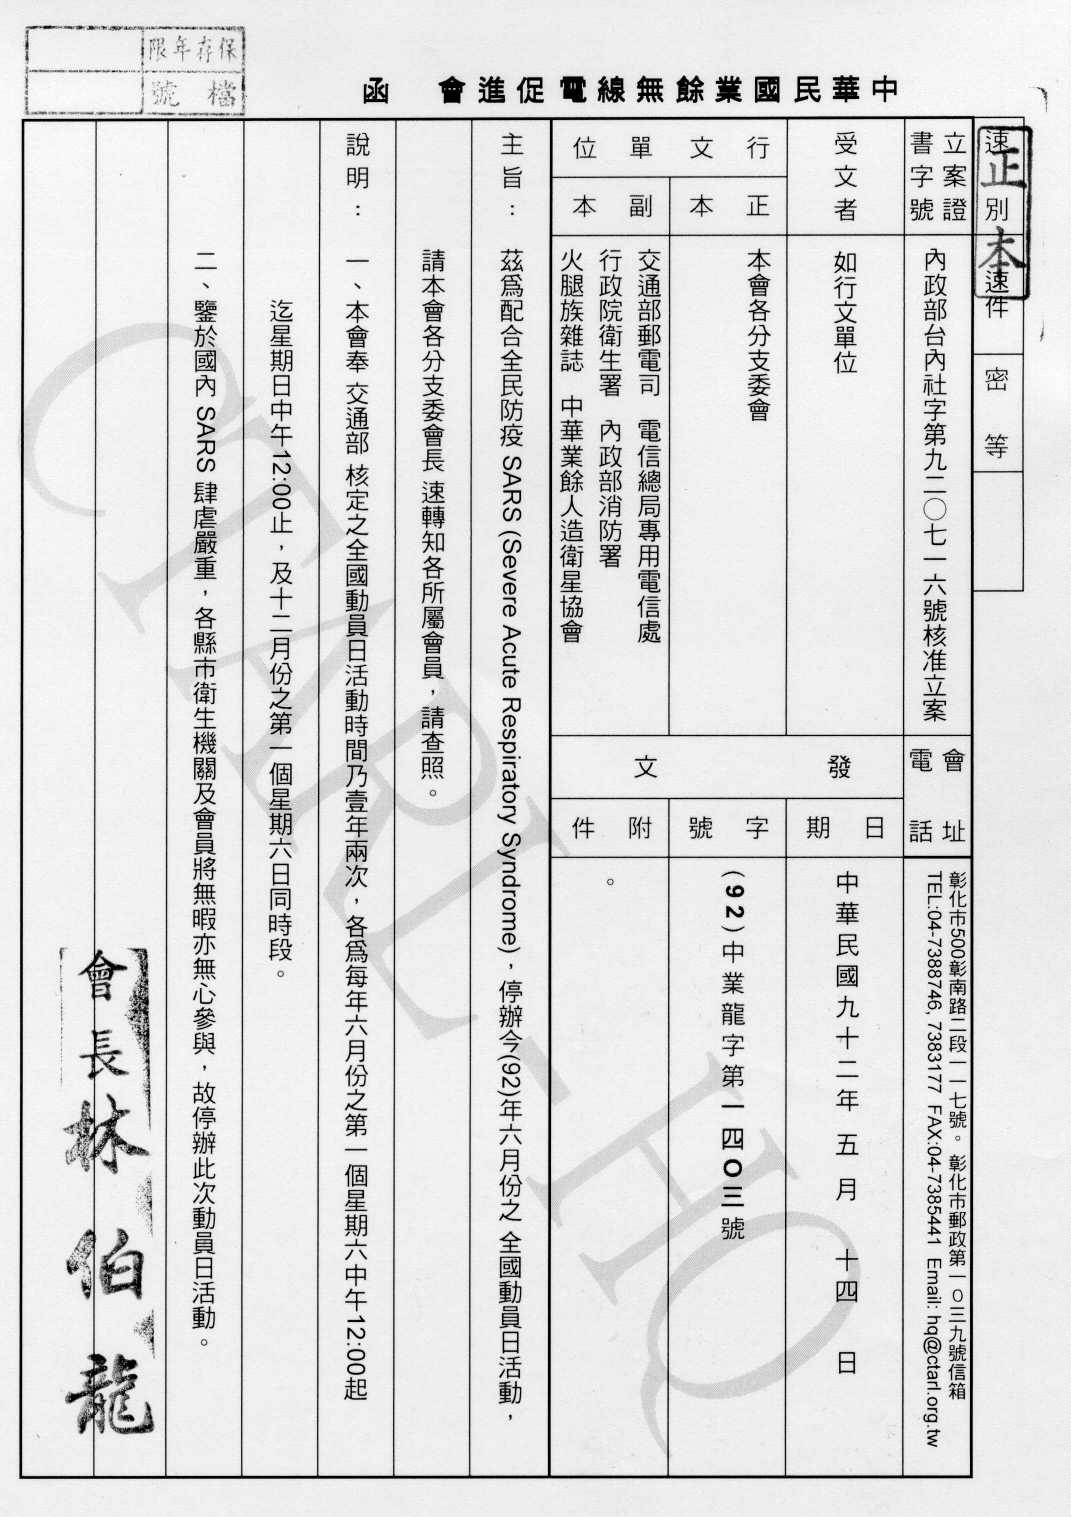 保存年限
檔號
中華民國業餘無線電促進會 函
正本
速別
速件
密等
立案證
書字號
內政部台內社字第九二〇七一六號核准立案
會址
電話
彰化市500彰南路二段一一七號。彰化市郵政第一０三九號信箱
TEL:04-7388746, 7383177 FAX:04-7385441 Email: hq@ctarl.org.tw
受文者
如行文單位
行文單位
正本
本會各分支委會
副本
交通部郵電司 電信總局專用電信處
行政院衛生署 內政部消防署
火腿族雜誌 中華業餘人造衛星協會
發文
日期
中華民國九十二年五月 十四 日
字號
(92)中業龍字第一四０三號
附件
。
主旨：
茲為配合全民防疫 SARS (Severe Acute Respiratory Syndrome)，停辦今(92)年六月份之 全國動員日活動，
請本會各分支委會長 速轉知各所屬會員，請查照。
說明：
一、本會奉 交通部 核定之全國動員日活動時間乃壹年兩次，各為每年六月份之第一個星期六中午12:00起
迄星期日中午12:00止，及十二月份之第一個星期六日同時段。
二、鑒於國內 SARS 肆虐嚴重，各縣市衛生機關及會員將無暇亦無心參與，故停辦此次動員日活動。
會長林伯龍
CTARL-HQ